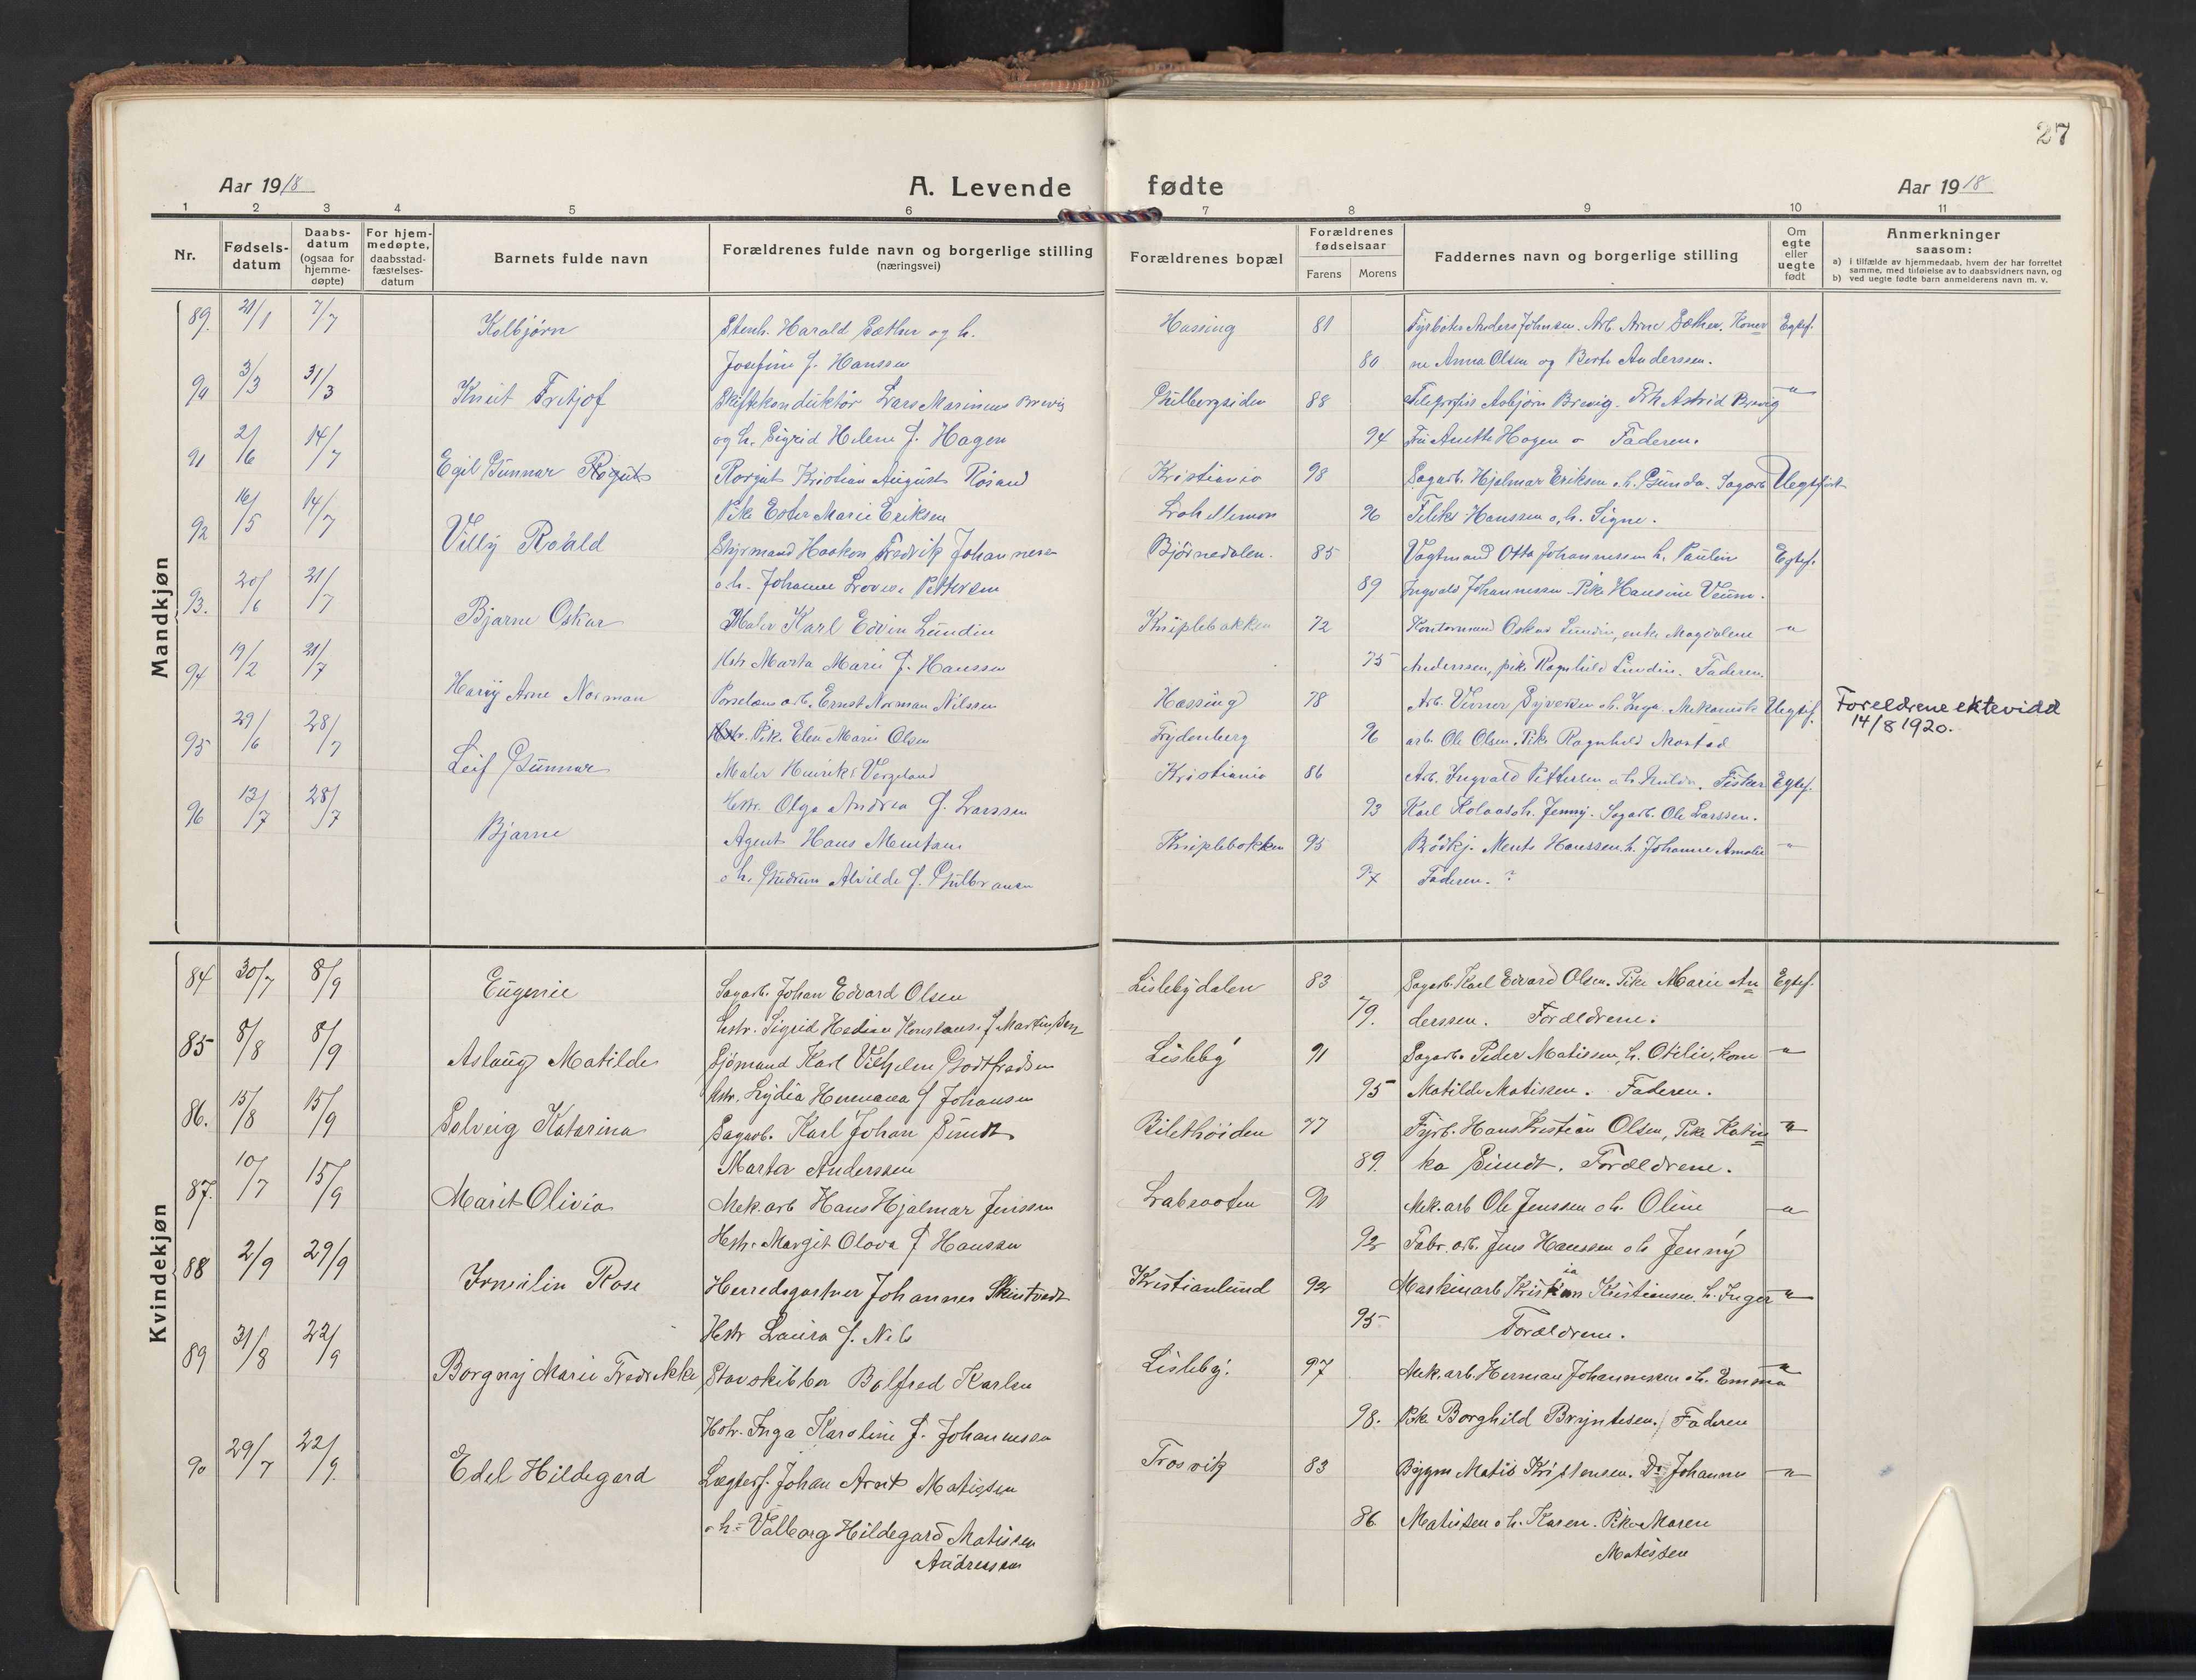 27
Aar 1918
A. Levende fødte
Aar 1918
1 2 3 4 5 6 7 8 9 10 11
Nr.
Fødsels-
datum
Daabs-
datum
(ogsaa for
hjemme-
døpte)
For hjem-
medøpte,
daabsstad-
fæstelses-
datum
Barnets fulde navn
Forældrenes fulde navn og borgerlige stilling
(næringsvei)
Forældrenes bopæl
Forældrenes
fødselsaar
Farens Morens
Faddernes navn og borgerlige stilling
Om
egte
eller
uegte
født
Anmerkninger
saasom:
a) i tilfælde av hjemmedaab, hvem der har forrettet
samme, med tilføielse av to daabsvidners navn, og
b) ved uegte fødte barn anmelderens navn m. v.
Mandkjøn
89. 21/1 7/7 Kolbjørn Stenh. Harald Sæther og h. Hassing 81 Fyrbøter Anders Johnsen. Arb. Arne Sæther. Koner Egtef.
Josefine f. Hanssen 80 ne Anna Olsen og Berte Anderssen.
90 3/3 31/3 Knut Fritjof Skiftekonduktør Lars Marinius Brevig 88 Telegrafist Asbjørn Brevig. Frk Astrid Brevig "
og h. Sigrid Helene f. Hagen 94 Fru Anette Hagen o Faderen.
91 2/6 14/7 Egil Gunnar Kristian August Kristiania 98 Sagarb. Hjalmar Eriksen o. h. Gunda. Sagarb Uegtefødt
Pike Ester Marie Eriksen 96 Hanssen o. h. Signe.
92 16/5 14/7 Villy Roald Styrmand Haakon Fredrik Johannesen Bjørnedalen. 85 Vagtmand Otto Johannessen h. Paulin Egtef.
o. h. Johanne Lovise Pettersen 89 Ingvald Johannessen Pike Hansine Veum.
93. 20/6 21/7 Bjarne Oskar Maler Karl Edvin Lundin Kniplebakken 72 Kontormand Oskar Lundin, enke Magdalene "
Hstr Marta Marie f. Hanssen 75 Anderssen, pike Ragnhild Lundin. Faderen.
94 19/2 21/7 Harry Arne Norman Porselæns arb. Ernst Norman Nilssen Hassing 78 Arb. Verner Syversen o. h. Inga. Mekaniske Uegtef. Foreldrene ektevidd
Pike Elen Marie Olsen Frydenberg 96 arb. Ole Olsen. Pike Ragnhild 14/8 1920.
95 29/6 28/7 Leif Gunnar Maler Henrik Vergeland Kristiania 86 Arb. Ingvald Pettersen o. h. Hulda. Fisker Egtef.
Hstr. Olga Andrea f. Larssen 93 Karl o. h. Jenny. Sagarb. Ole Larssen.
96 13/7 28/7 Bjarne Agent Hans Kniplebakken 95 Bødkj. Hanssen h. Johanne Amalie "
o h. Gudrun Alvilde f. Gulbransen 97 Faderen. ?
Kvindekjøn
84 30/7 8/9 Eugenie Sagarb. Johan Edvard Olsen Lislebydalen 83 Sagarb. Karl Edvard Olsen. Pike Marie An Egtef.
Hstr. Sigrid Hedine Konstanse f Martinsen 79. derssen. Forældrene.
85 8/8 8/9 Aslaug Matilde Sjømand Karl Vilhelm Godtfredsen Lisleby 91 Sagarb. Peder Matissen, h. Otilie, kone "
Hstr. Lydia Hermana f Johansen 95 Matilde Matissen. Faderen.
86. 15/8 15/9 Solveig Katarina Sagarb. Karl Johan Sundt 77 Fyrb. Hans Kristian Olsen, Pike Katin "
Marta Anderssen 89. ka Sundt. Forældrene.
87. 10/7 15/9 Marit Olivia Mek. arb Hans Hjalmar Jenssen Labraaten 90 Mek. arb Ole Jenssen o h. Oline "
Hstr. Margit Olava f Hanssen 92 Fabr. arb. Jens Hanssen o h Jenny
88 2/9 29/9 Irmelin Rose Herredsgartner Johannes Skintvedt Kristianlund 92 Maskinarb Kristian Kristiansen. h. Inger "
Hstr Laura f. Nils 95 Forældrene.
89 31/8 22/9 Borgny Marie Fredrikke Karlsen Lisleby. 97 Mek. arb. Herman Johannessen o h. Emma "
Hstr. Inga Karoline f. Johannessen 98. Pike Borghild Bryntesen. Faderen
90 29/7 22/9 Edel Hildegard Lægterf. Johan Arnt Matissen Trosvik 83 Bygm Matis Kristensen. Do Johannes "
o h. Valborg Hildegard Matissen 86 Matissen o h. Karen. Pike Maren
Andreassen Matissen